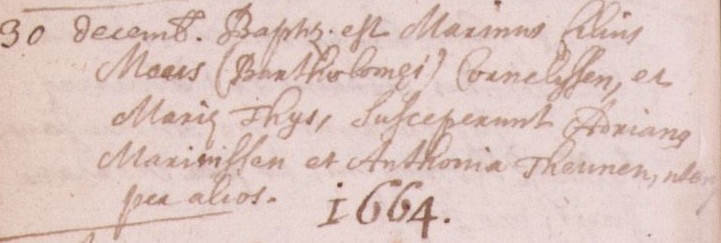 30 decemb. Baptiz. est Marinus filius
Maes (Bartholomęi) Cornelissen, et
Marię Thys, susceperunt Adrianꝰ
Marinissen et Anthonia Theunen,
per alios.
1664.